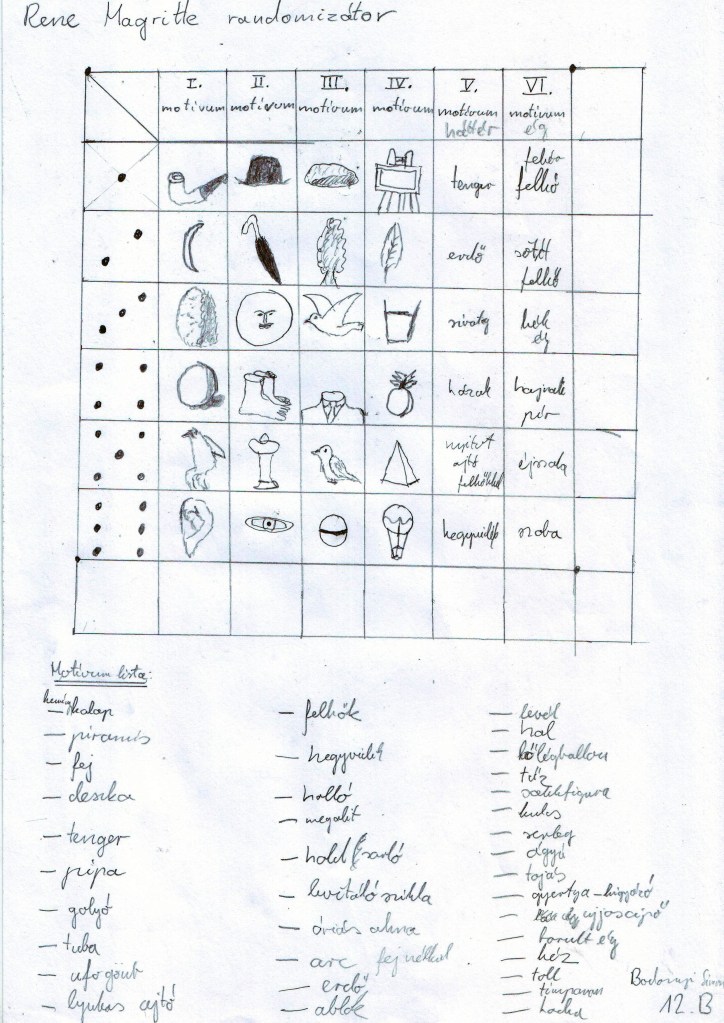 Rene Magritte randomizátor
I. II. III. IV. V. VI.
motívum motívum motívum motívum motívum motívum
háttér ég
tenger fehér
felhő
erdő sötét
felhő
sivatag kék
ég
házak hajnali
pír
nyitott
ajtó
felhőkkel éjszaka
hegyvidék szoba
Motívum lista:
kalap
— piramis
— fej
— deszka
— tenger
— pipa
— golyó
— tuba
— ufo gömb
— lyukas ajtó
— felhők
— hegyvidék
— holló
— megalit
— hold (sarló
— levitáló szikla
— óriás alma
— arc fej nélkül
— erdő
— ablak
— levél
— hal
— hőlégballon
— tűz
— sakkfigura
— kulcs
— serleg
— ágyú
— tojás
— gyertya - kígyózó
— borult ég
— kéz
— toll
— timpanon
12. B